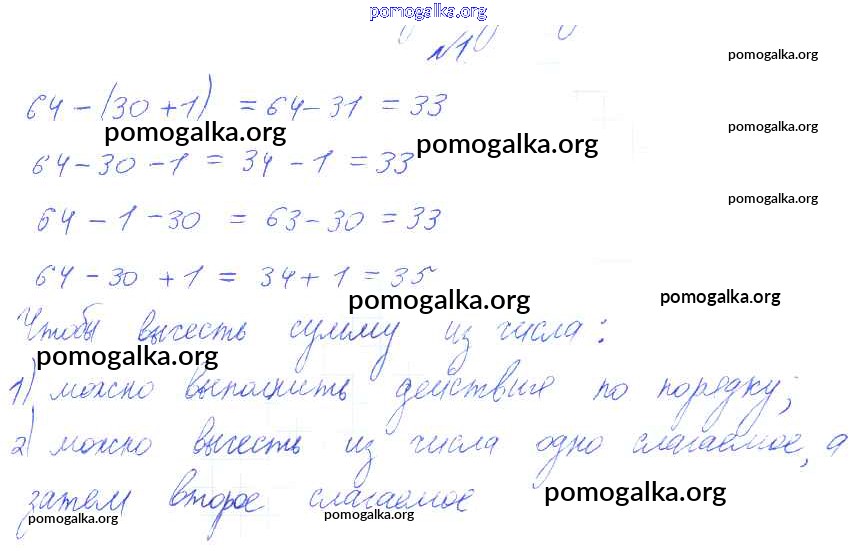 pomogalka.org
№1
pomogalka.org
64 - (30 + 1) = 64 - 31 = 33
pomogalka.org
pomogalka.org
pomogalka.org
64 - 30 - 1 = 34 - 1 = 33
pomogalka.org
64 - 1 - 30 = 63 - 30 = 33
64 - 30 + 1 = 34 + 1 = 35
pomogalka.org
pomogalka.org
Чтобы вычесть сумму из числа:
pomogalka.org
1) можно выполнить действие по порядку;
2) можно вычесть из числа одно слагаемое, а
затем второе слагаемое
pomogalka.org
pomogalka.org
pomogalka.org